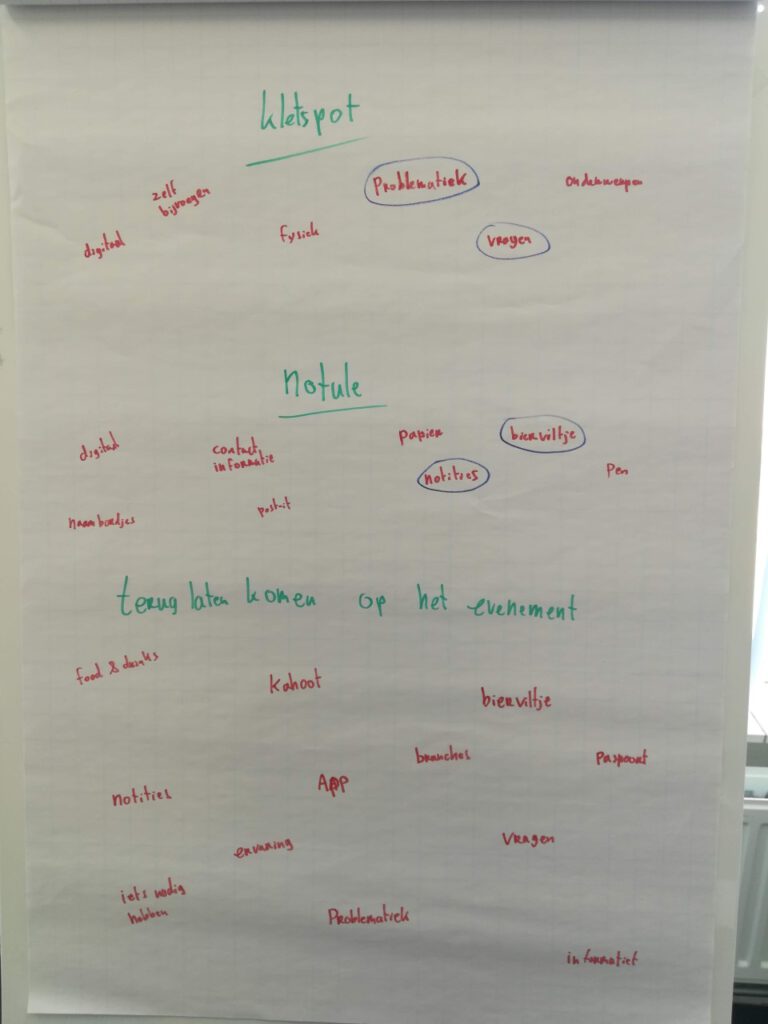 kletspot
zelf
bijvoegen
Problematiek
onderwerpen
digitaal
fysiek
vragen
notule
digitaal
contact
informatie
papier
bierviltje
notities
Pen
naambordjes
post-it
terug laten komen op het evenement
food & drinks
Kahoot
bierviltje
branches
Paspoort
notities
App
ervaring
Vragen
iets nodig
hebben
Problematiek
informatief